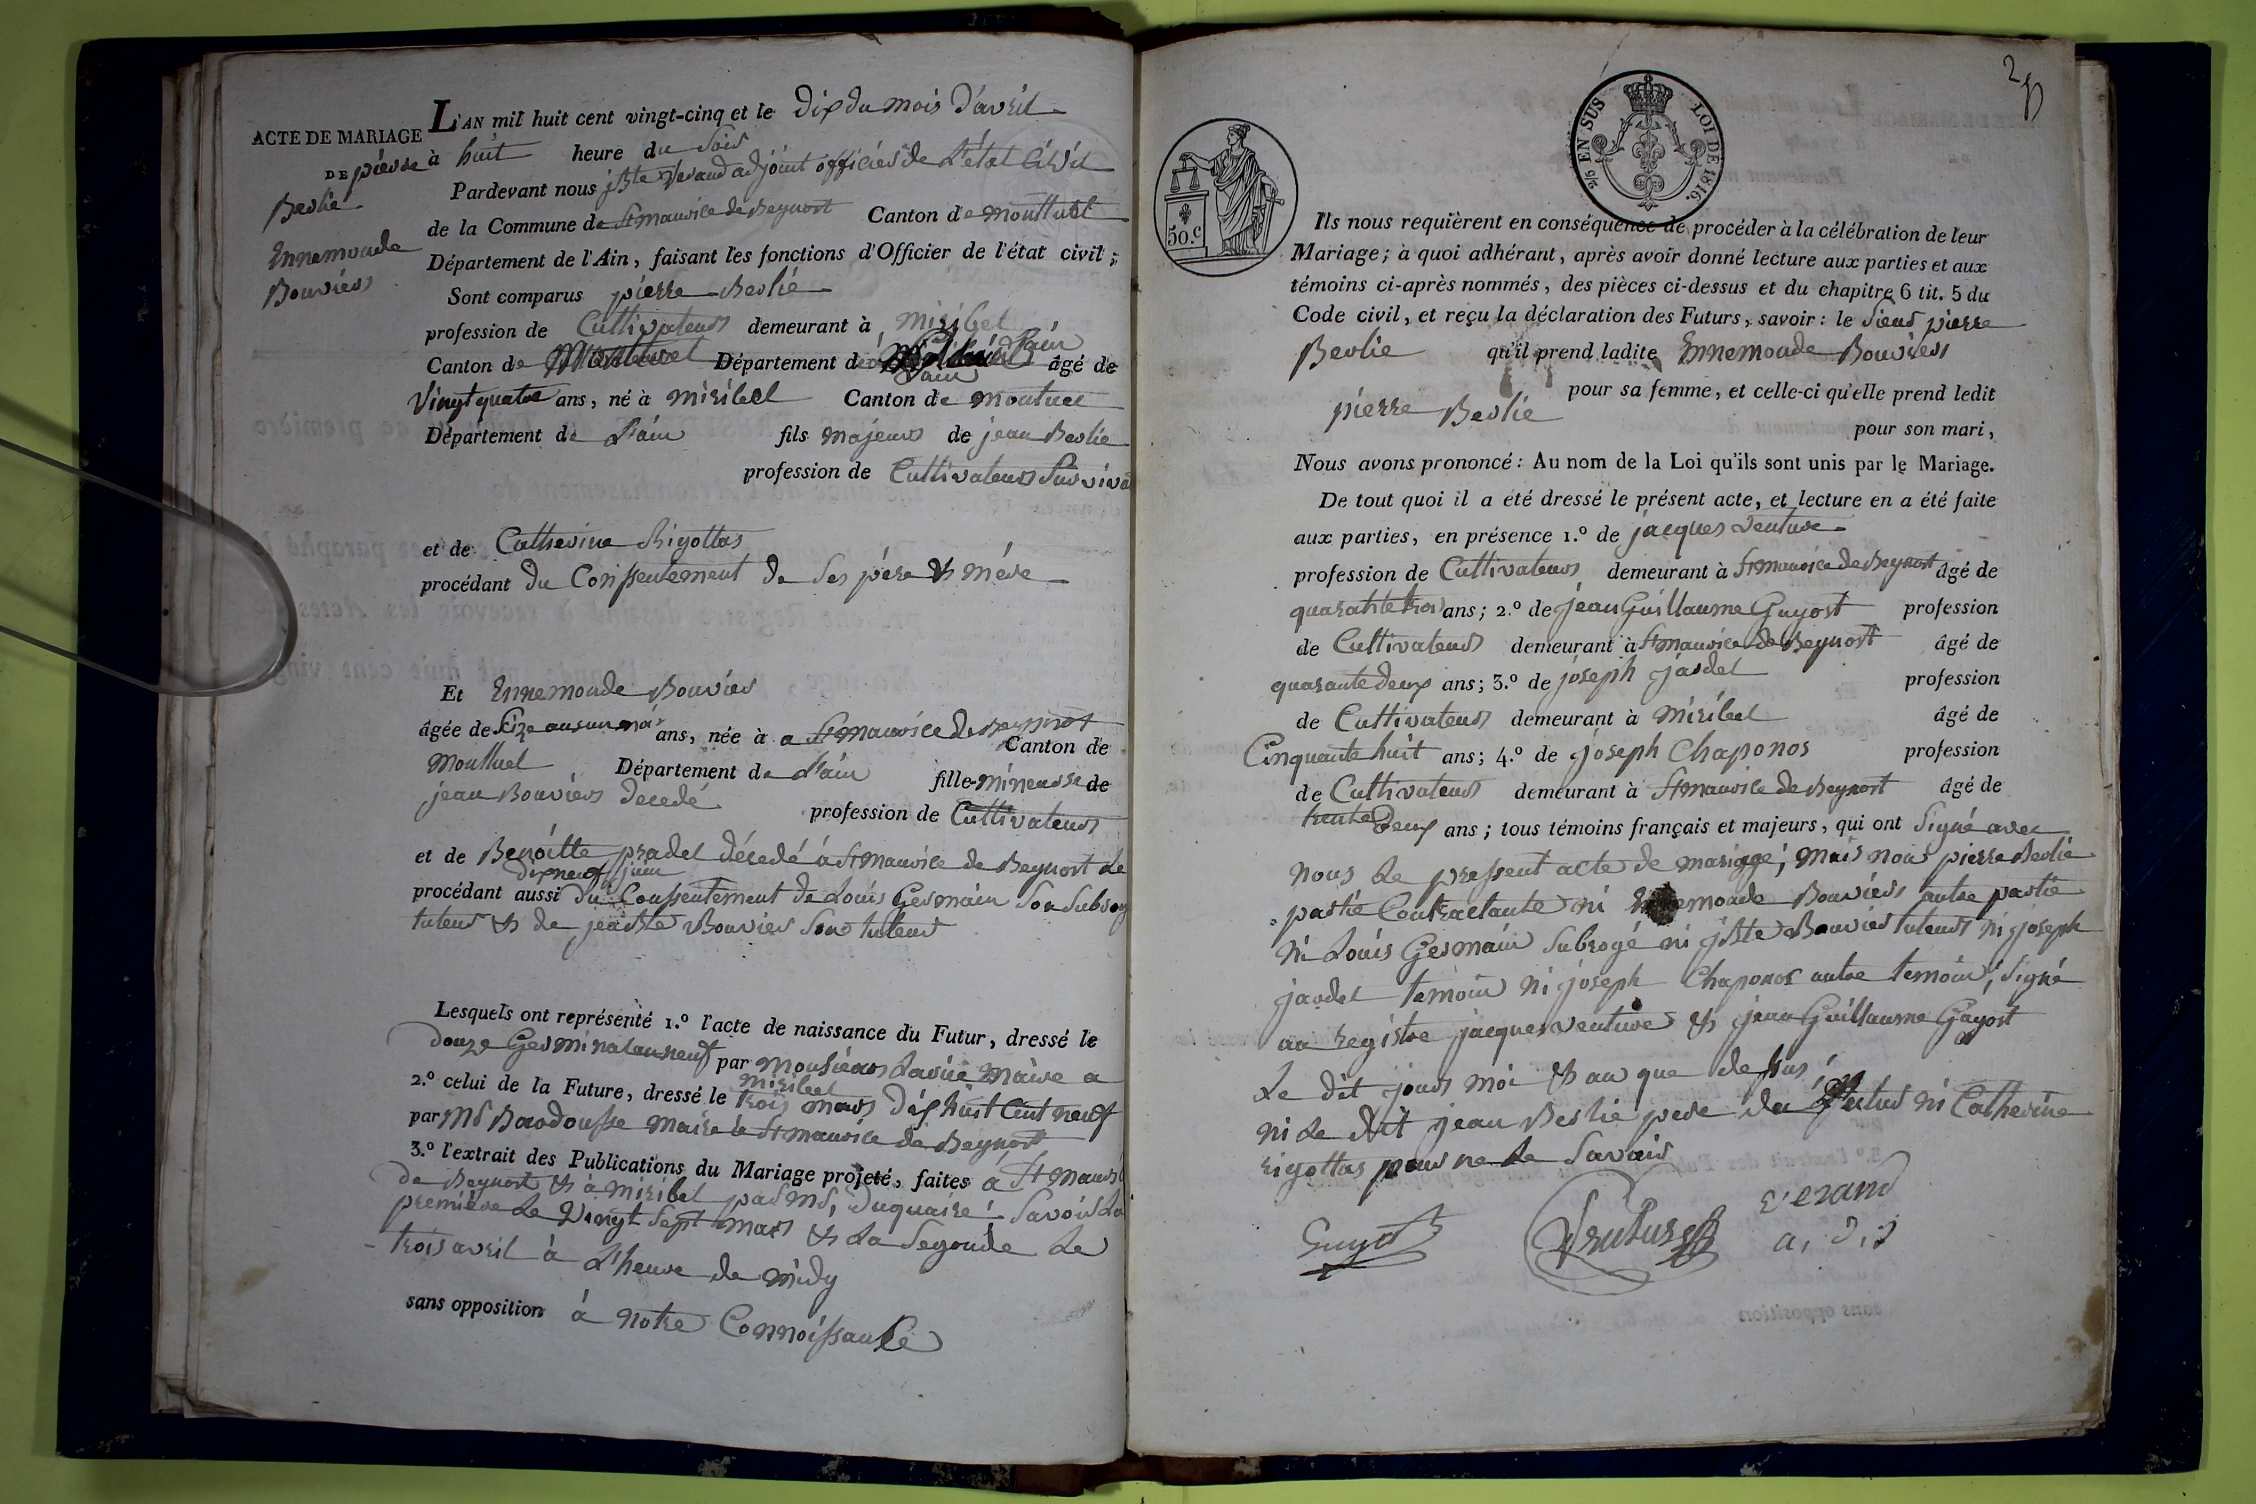 ACTE DE MARIAGE
DE pierre
Berlie
Ennemonde
Bouvier
L'AN mil huit cent vingt-cinq et le dix du mois d'avril
à huit heure du soir
Pardevant nous jbte Verand adjoint officier de L'état Civil
de la Commune de St maurice de Beynost Canton de montluel
Département de l'Ain, faisant les fonctions d'Officier de l'état civil ;
Sont comparus pierre Berlié
profession de Cultivateur demeurant à miribel
Canton de Montluel Département de L'ain âgé de
Vingt quatre ans, né à miribel Canton de montuel
Département de L'ain fils majeur de jean Berlie
profession de Cultivateur Survivant
et de Catherine Rigottas
procédant du Conssentement de ses père & mére
Et Ennemonde Bouvier
âgée de seize ans un moi ans, née à a St maurice de Beynost
Canton de
Montluel Département de L'ain fille mineurse de
jean Bouvier decedé
profession de Cultivateur
et de Benoitte pradel décedé á St maurice de Beynost Le
dix neuf juin
procédant aussi du Conssentement de Louis Germain Son Subrogé
tuteur & de jean Bte Bouvier Son tuteur
Lesquels ont représenté 1.º l'acte de naissance du Futur, dressé le
douze Germinal an neuf par Monsieur Lavie maire a
miribel
2.º celui de la Future, dressé le trois mars dix huit Cent neuf
par Mr Bardousse maire de St maurice de Beynost
3.º l'extrait des Publications du Mariage projeté, faites à St maurice
de Beynost & à miribel par Mr, Duquaire Savoir La
premiére Le vingt Sept mars & La Segonde Le
trois avril à L'heure de midy
sans opposition à notre Connoissance
2
50.c
2/5 EN SUS LOI DE 1816.
Ils nous requièrent en conséquence de procéder à la célébration de leur
Mariage ; à quoi adhérant, après avoir donné lecture aux parties et aux
témoins ci-après nommés, des pièces ci-dessus et du chapitre 6 tit. 5 du
Code civil, et reçu la déclaration des Futurs, savoir : le Sieur pierre
Berlie qu'il prend ladite Ennemonde Bouvier
pour sa femme, et celle-ci qu'elle prend ledit
pierre Berlie
pour son mari,
Nous avons prononcé : Au nom de la Loi qu'ils sont unis par le Mariage.
De tout quoi il a été dressé le présent acte, et lecture en a été faite
aux parties, en présence 1.º de jacques Venture
profession de Cultivateur demeurant à St maurice de Beynost âgé de
quarante trois ans ; 2.º de jean Guillaume Guyost profession
de Cultivateur demeurant à St maurice de Beynost âgé de
quarante deux ans ; 3.º de joseph jardel profession
de Cultivateur demeurant à Miribel âgé de
Cinquante huit ans ; 4.º de joseph Chaponos profession
de Cultivateur demeurant à St maurice de Beynost âgé de
trente deux ans ; tous témoins français et majeurs, qui ont signé avec
nous Le pressent acte de mariage ; mais non pierre Berlie
partie Contractante ni Ennemonde Bouvier autre partie
ni Louis Germain Subrogé ni jBte Bouvier tuteur ni joseph
jardel temoin ni joseph Chaponos autre temoin, Signé
au registre jacques venture & jean Guillaume Guyost
Le dit jour moi & an que dessus
ni Le dit jean Berlie pere du futur ni Catherine
rigottas pour ne Le Savoir
Guyot Venture Verand
a, d, j